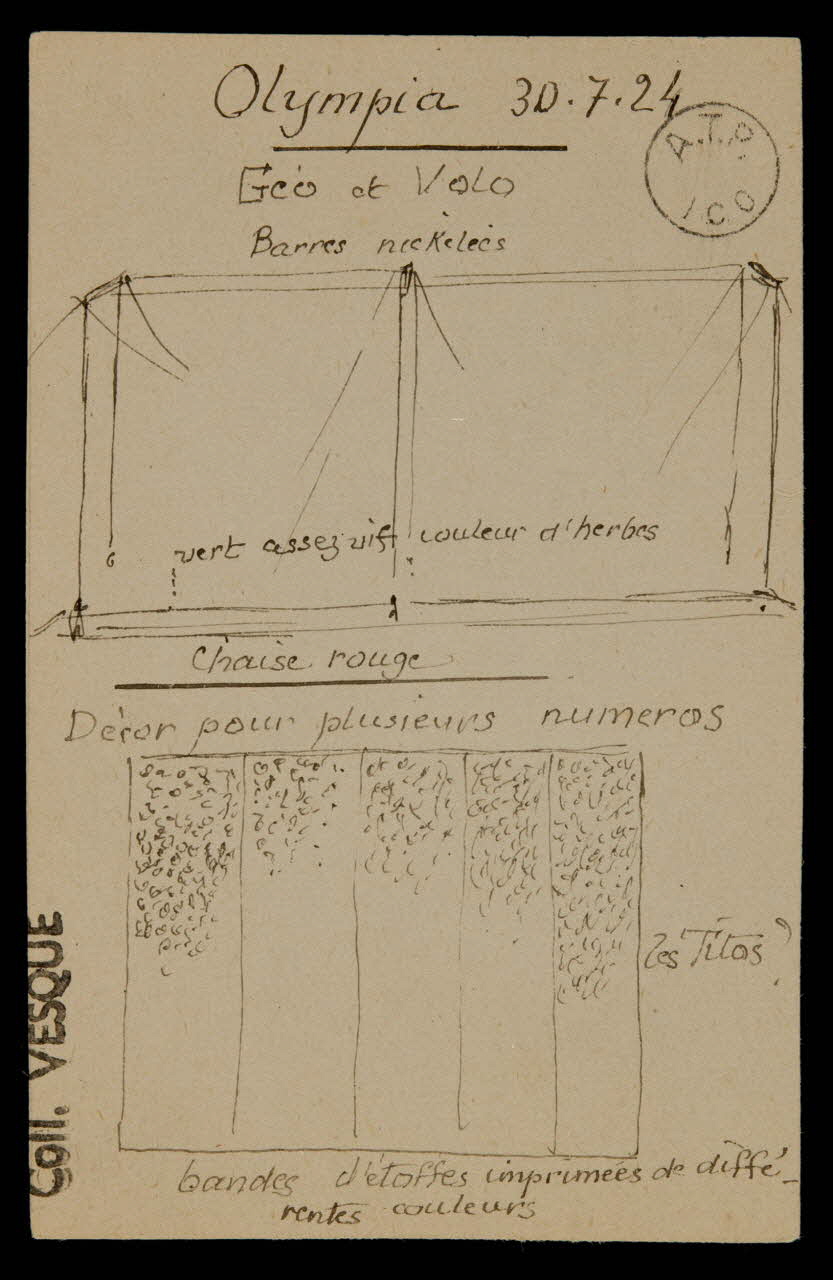 Olympia 30.7.24
A.T.P.
ICO
Géo et Volo
Barres nickelées
vert assez vif couleur d'herbes
Chaise rouge
Décor pour plusieurs numeros
les Titos
bandes d'étoffes imprimées de diffé-
rentes couleurs
Coll. VESQUE